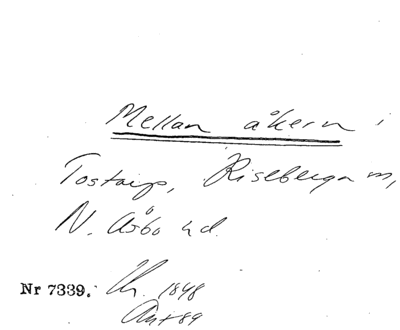 Mellan åkern i
Tostarp, Riseberga sn,
N. Åsbo hd.
Nr 7339. 1848
89